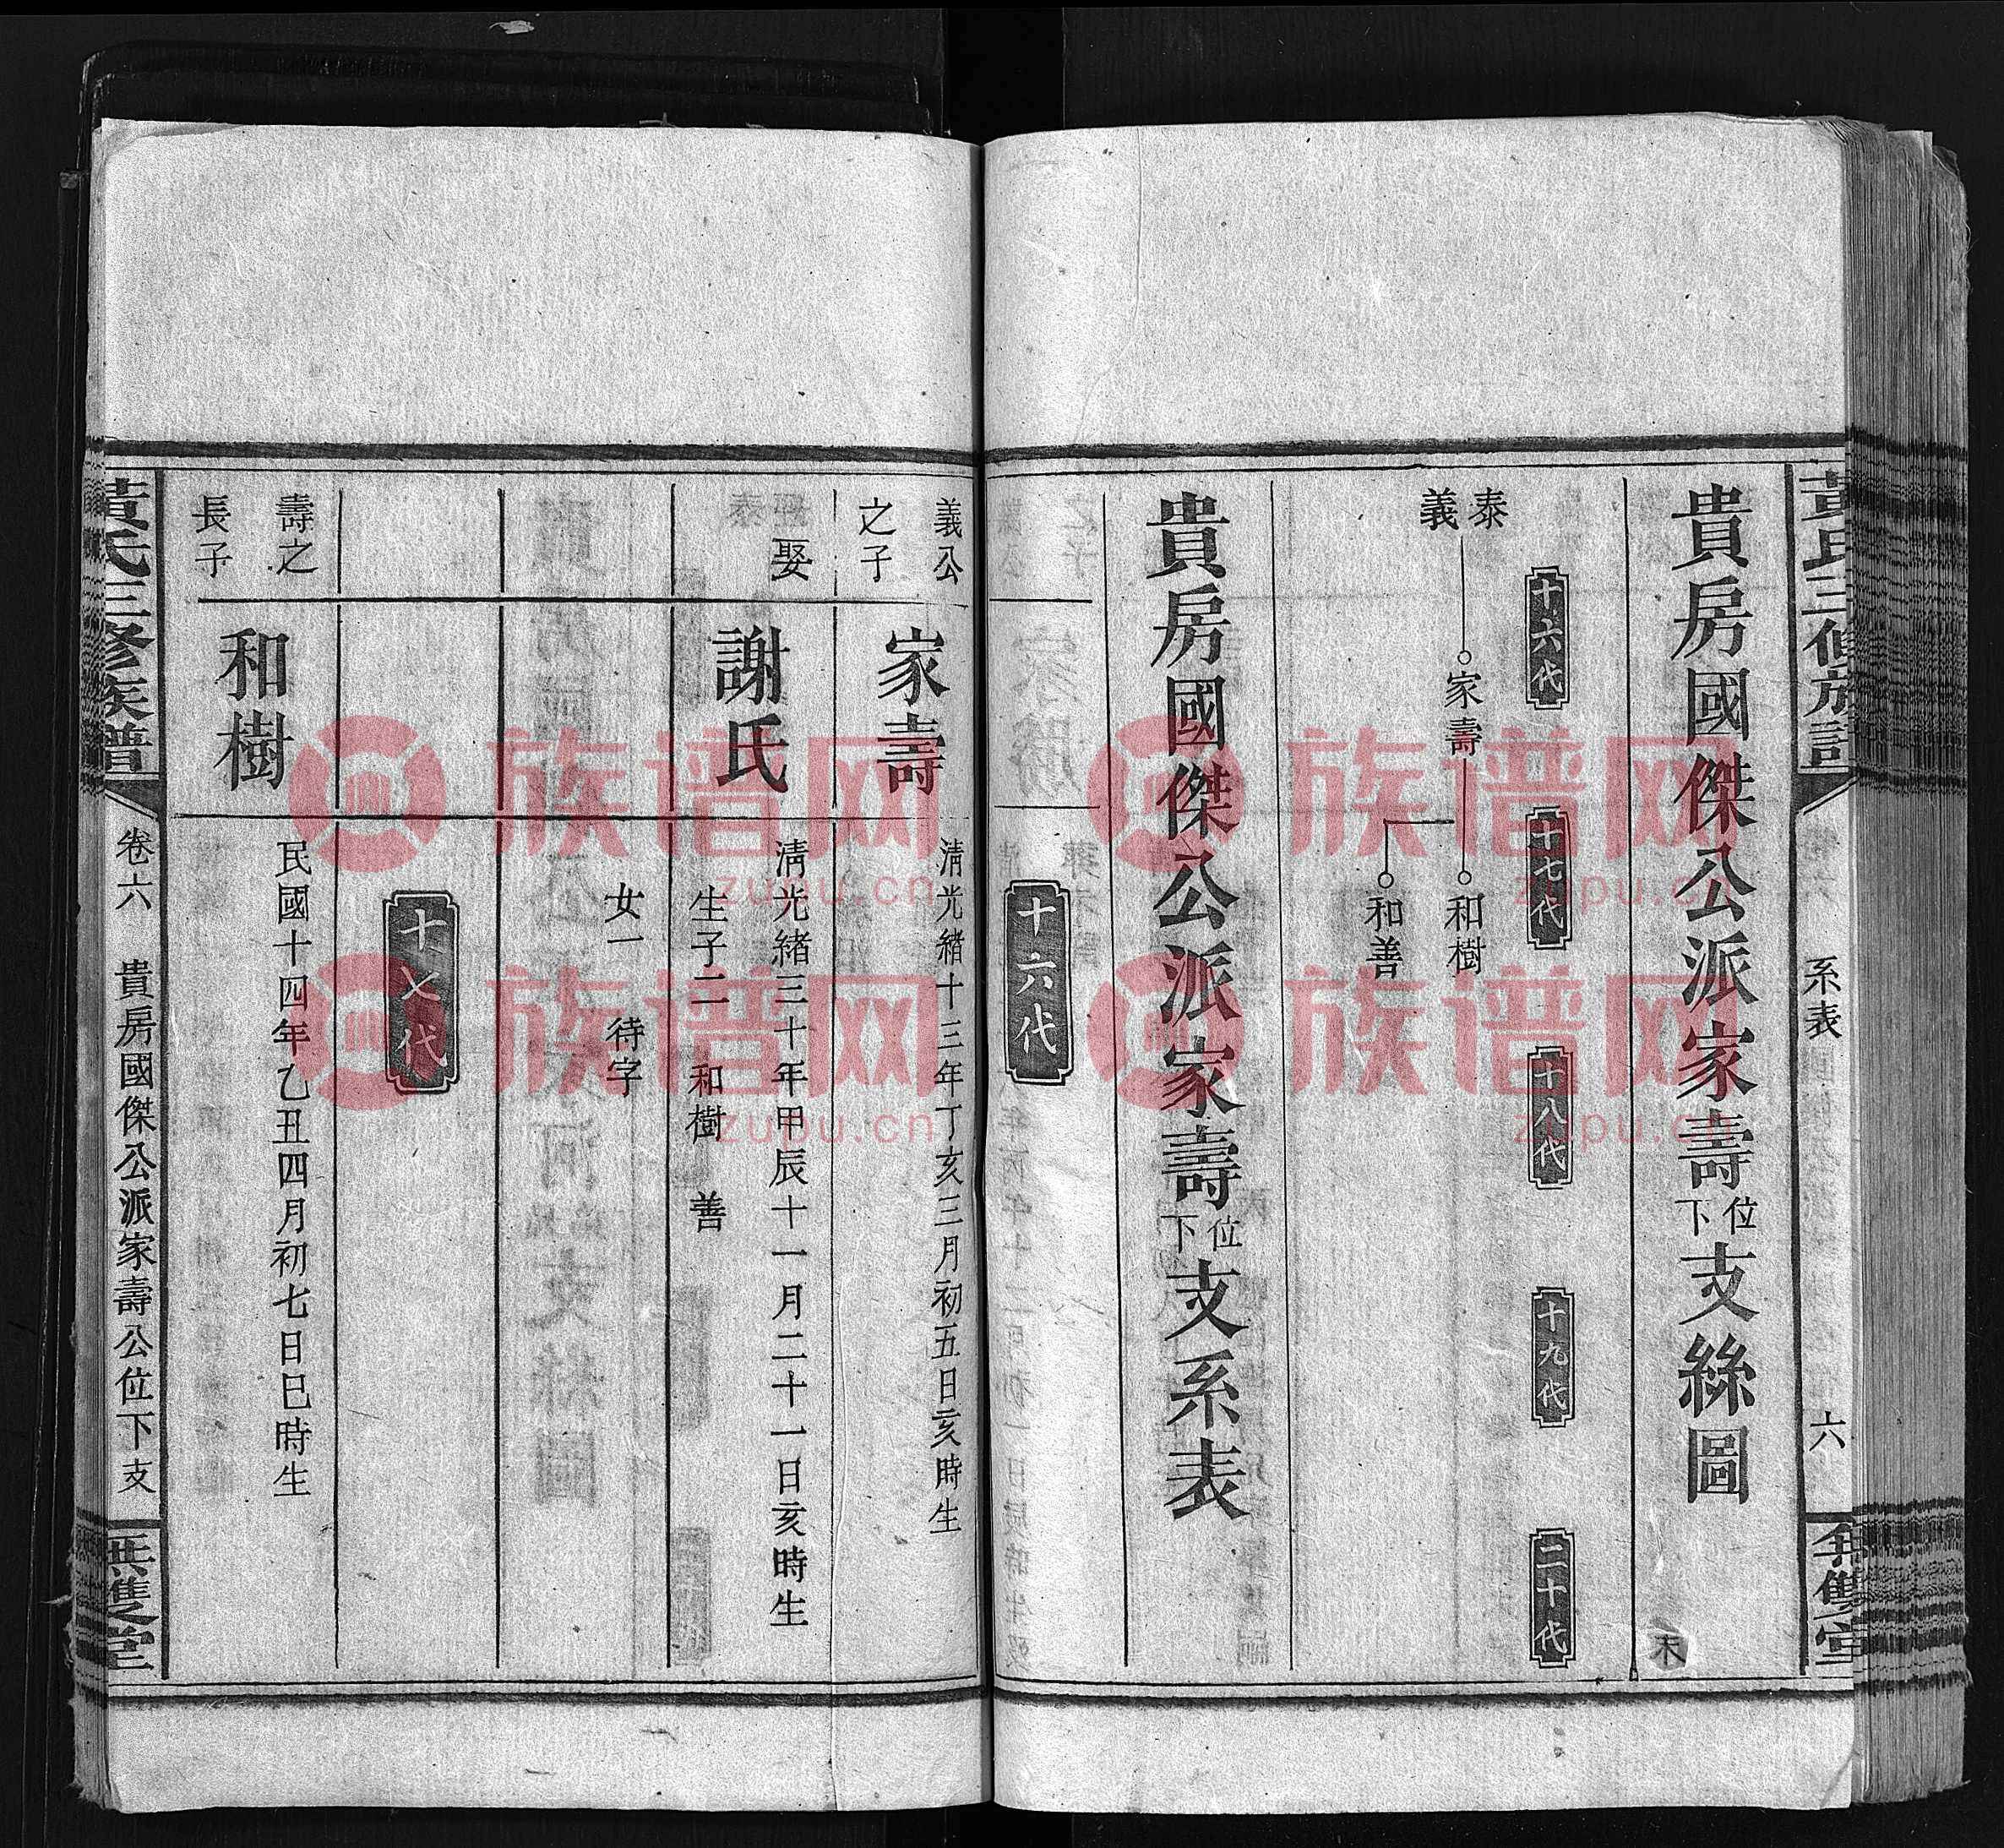 系表
六
貴房國傑公派家壽位下支絲圖
十六代
十七代
十八代
十九代
二十代
泰義
家壽
和樹
和善
貴房國傑公派家壽位下支系表
十六代
義公之子
家壽
清光緒十三年丁亥三月初五日亥時生
娶
謝氏
清光緒三十年甲辰十一月二十一日亥時生
生子二 和樹 善
女一 待字
十七代
壽之長子
和樹
民國十四年乙丑四月初七日巳時生
黃氏三修族譜
卷六 貴房國傑公派家壽公位下支
族谱网
zupu.cn
族谱网
zupu.cn
族谱网
zupu.cn
族谱网
zupu.cn